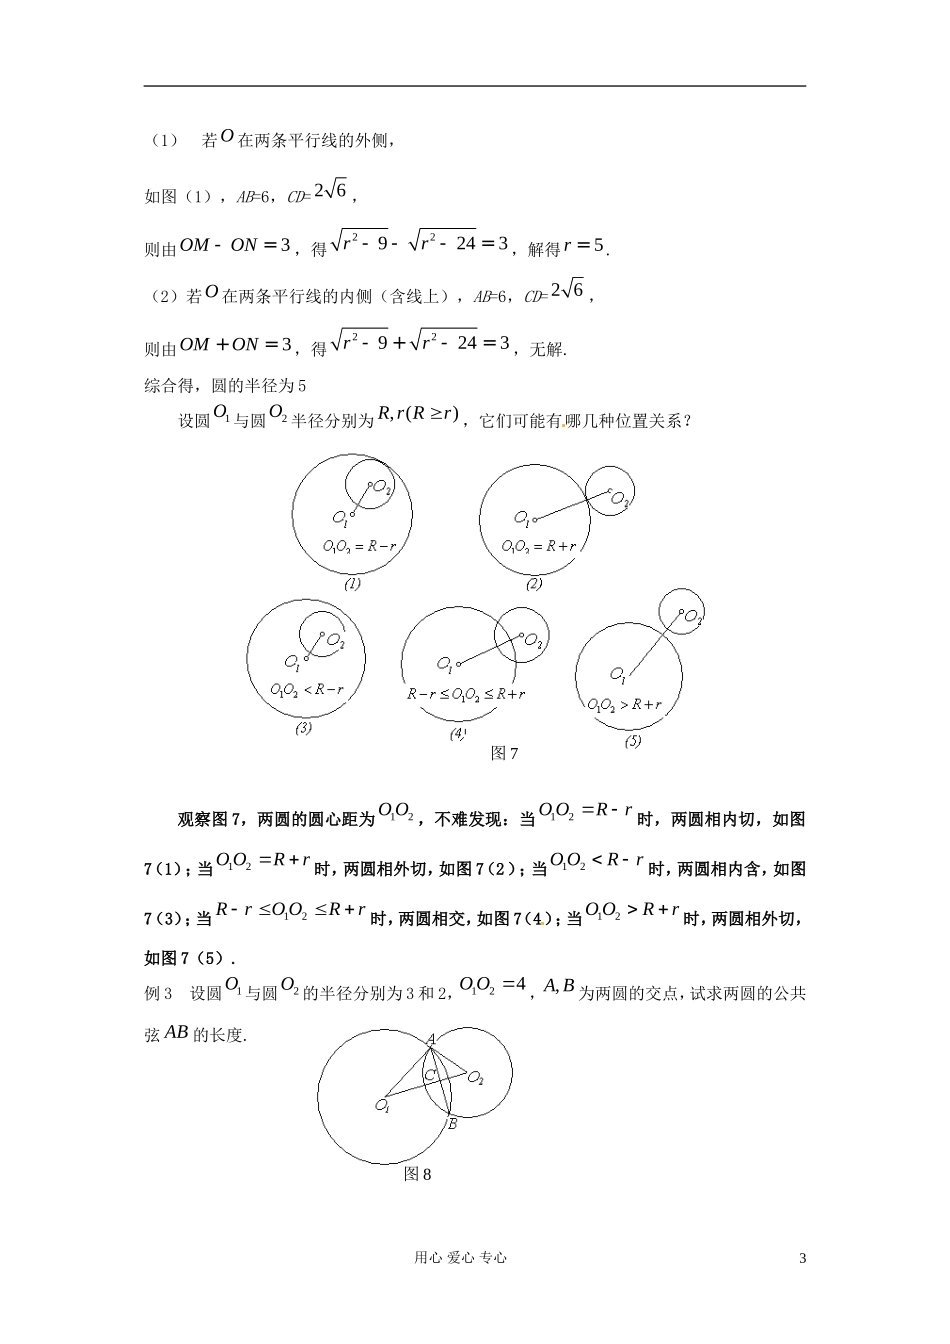 （1） 若O在两条平行线的外侧，
如图（1），AB=6，CD=2√6，
则由OM - ON = 3，得√(r² - 9) - √(r² - 24) = 3，解得r = 5．
（2）若O在两条平行线的内侧（含线上），AB=6，CD=2√6，
则由OM + ON = 3，得√(r² - 9) + √(r² - 24) = 3，无解．
综合得，圆的半径为 5
设圆O₁与圆O₂半径分别为R, r(R ≥ r)，它们可能有哪几种位置关系？
O₂
O₁
O₁O₂ = R − r
(1)
O₂
O₁
O₁O₂ = R + r
(2)
O₂
O₁
O₁O₂ < R − r
(3)
O₂
O₁
R − r ≤ O₁O₂ ≤ R + r
(4)
O₂
O₁
O₁O₂ > R + r
(5)
图 7
观察图 7，两圆的圆心距为O₁O₂，不难发现：当O₁O₂ = R - r时，两圆相内切，如图
7(1)；当O₁O₂ = R + r时，两圆相外切，如图 7(2)；当O₁O₂ < R - r时，两圆相内含，如图
7(3)；当R - r ≤ O₁O₂ ≤ R + r时，两圆相交，如图 7(4)；当O₁O₂ > R + r时，两圆相外切，
如图 7（5）．
例 3 设圆O₁与圆O₂的半径分别为 3 和 2，O₁O₂ = 4，A, B为两圆的交点，试求两圆的公共
弦AB的长度．
A
C
O₂
O₁
B
图 8
用心 爱心 专心 3